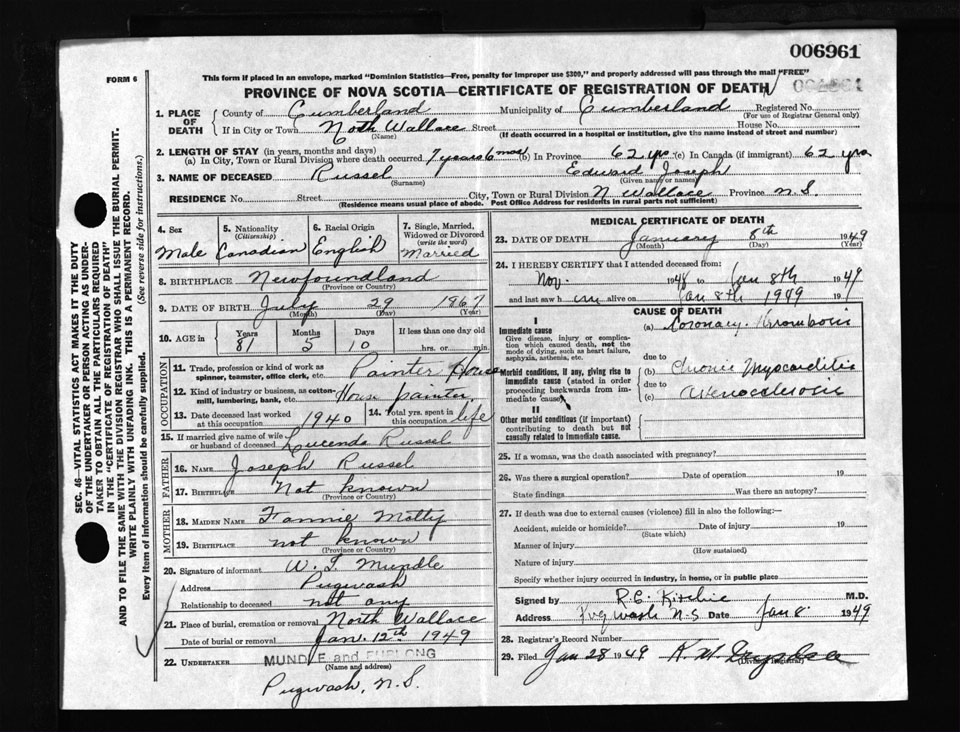 006961
FORM 6
This form if placed in an envelope, marked "Dominion Statistics—Free, penalty for improper use $300," and properly addressed will pass through the mail "FREE"
PROVINCE OF NOVA SCOTIA—CERTIFICATE OF REGISTRATION OF DEATH
1. PLACE OF DEATH County of Cumberland Municipality of Cumberland Registered No.
(For use of Registrar General only)
If in City or Town North Wallace Street House No.
(Name) (If death occurred in a hospital or institution, give the name instead of street and number)
2. LENGTH OF STAY (in years, months and days)
(a) In City, Town or Rural Division where death occurred 7 years 6 mos (b) In Province 62 yrs (c) In Canada (if immigrant) 62 yrs
3. NAME OF DECEASED Russel Edward Joseph
(Surname) (Given name or names)
RESIDENCE No. Street City, Town or Rural Division N. Wallace Province N.S.
(Residence means usual place of abode. Post Office Address for residents in rural parts not sufficient)
SEC. 46—VITAL STATISTICS ACT MAKES IT THE DUTY
OF THE UNDERTAKER OR PERSON ACTING AS UNDER-
TAKER TO OBTAIN ALL THE PARTICULARS REQUIRED
IN THE "CERTIFICATE OF REGISTRATION OF DEATH"
AND TO FILE THE SAME WITH THE DIVISION REGISTRAR WHO SHALL ISSUE THE BURIAL PERMIT.
WRITE PLAINLY WITH UNFADING INK. THIS IS A PERMANENT RECORD.
Every item of information should be carefully supplied. (See reverse side for instructions.)
4. Sex 5. Nationality (Citizenship) 6. Racial Origin 7. Single, Married, Widowed or Divorced (write the word)
Male Canadian English Married
8. BIRTHPLACE Newfoundland
(Province or Country)
9. DATE OF BIRTH July 29 1867
(Month) (Day) (Year)
10. AGE in Years Months Days If less than one day old
81 5 10 hrs. or min.
OCCUPATION
11. Trade, profession or kind of work as spinner, teamster, office clerk, etc. Painter House
12. Kind of industry or business, as cotton-mill, lumbering, bank, etc. House painter
13. Date deceased last worked at this occupation 1940 14. Total yrs. spent in this occupation life
15. If married give name of wife or husband of deceased Lucenda Russel
FATHER
16. NAME Joseph Russel
17. BIRTHPLACE Not known
(Province or Country)
MOTHER
18. MAIDEN NAME Fannie Matty
19. BIRTHPLACE not known
(Province or Country)
20. Signature of informant W. F. Mundle
Address Pugwash
Relationship to deceased not any
21. Place of burial, cremation or removal North Wallace
Date of burial or removal Jan. 12th 1949
22. UNDERTAKER MUNDLE and FURLONG
(Name and address)
Pugwash, N.S.
MEDICAL CERTIFICATE OF DEATH
23. DATE OF DEATH January 8th 1949
(Month) (Day) (Year)
24. I HEREBY CERTIFY that I attended deceased from:
Nov. 1948 to Jan 8th 1949
and last saw him alive on Jan 8th 1949 19
CAUSE OF DEATH
I
Immediate cause (a) Coronary Thrombosis
Give disease, injury or complication which caused death, not the mode of dying, such as heart failure, asphyxia, asthenia, etc.
due to
Morbid conditions, if any, giving rise to immediate cause (stated in order proceeding backwards from immediate cause)
(b) Chronic Myocarditis
due to
(c) Arteriosclerosis
II
Other morbid conditions (if important) contributing to death but not causally related to immediate cause.
25. If a woman, was the death associated with pregnancy?
26. Was there a surgical operation? Date of operation 19
State findings Was there an autopsy?
27. If death was due to external causes (violence) fill in also the following:—
Accident, suicide or homicide? Date of injury 19
(State which)
Manner of injury
(How sustained)
Nature of injury
Specify whether injury occurred in industry, in home, or in public place
Signed by M.D.
Address Pugwash N.S Date Jan 8. 1949
28. Registrar's Record Number
29. Filed Jan 28 1949 K. M.
(Division Registrar)